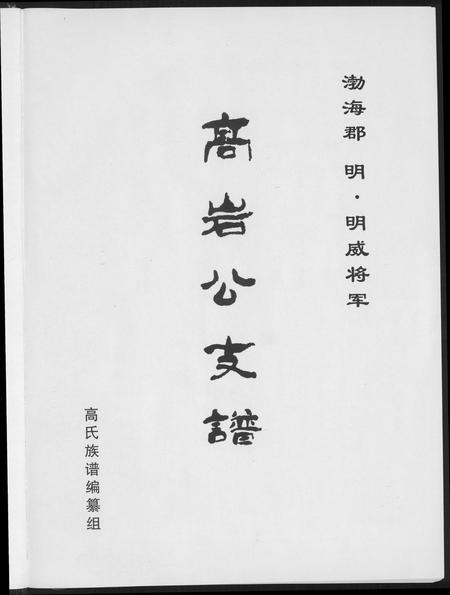 渤海郡 明·明威将军
高岩公支譜
高氏族谱编纂组